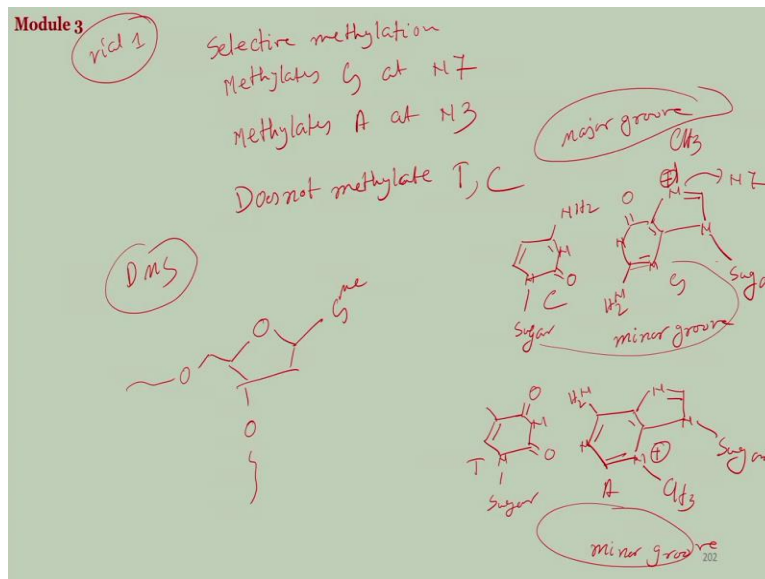 Module 3
vial 1
Selective methylation
Methylates G at N7
Methylates A at N3
Does not methylate T, C
major groove
CH3
⊕
N
N7
O
N
NH2
N
N
N
N
O
N
C
Sugar
H2N
G
Sugar
minor groove
DMS
G Me
O
O
O
H2N
N
O
N
N
N
N
O
N
N
⊕
T
Sugar
A
CH3
Sugar
minor groove
202